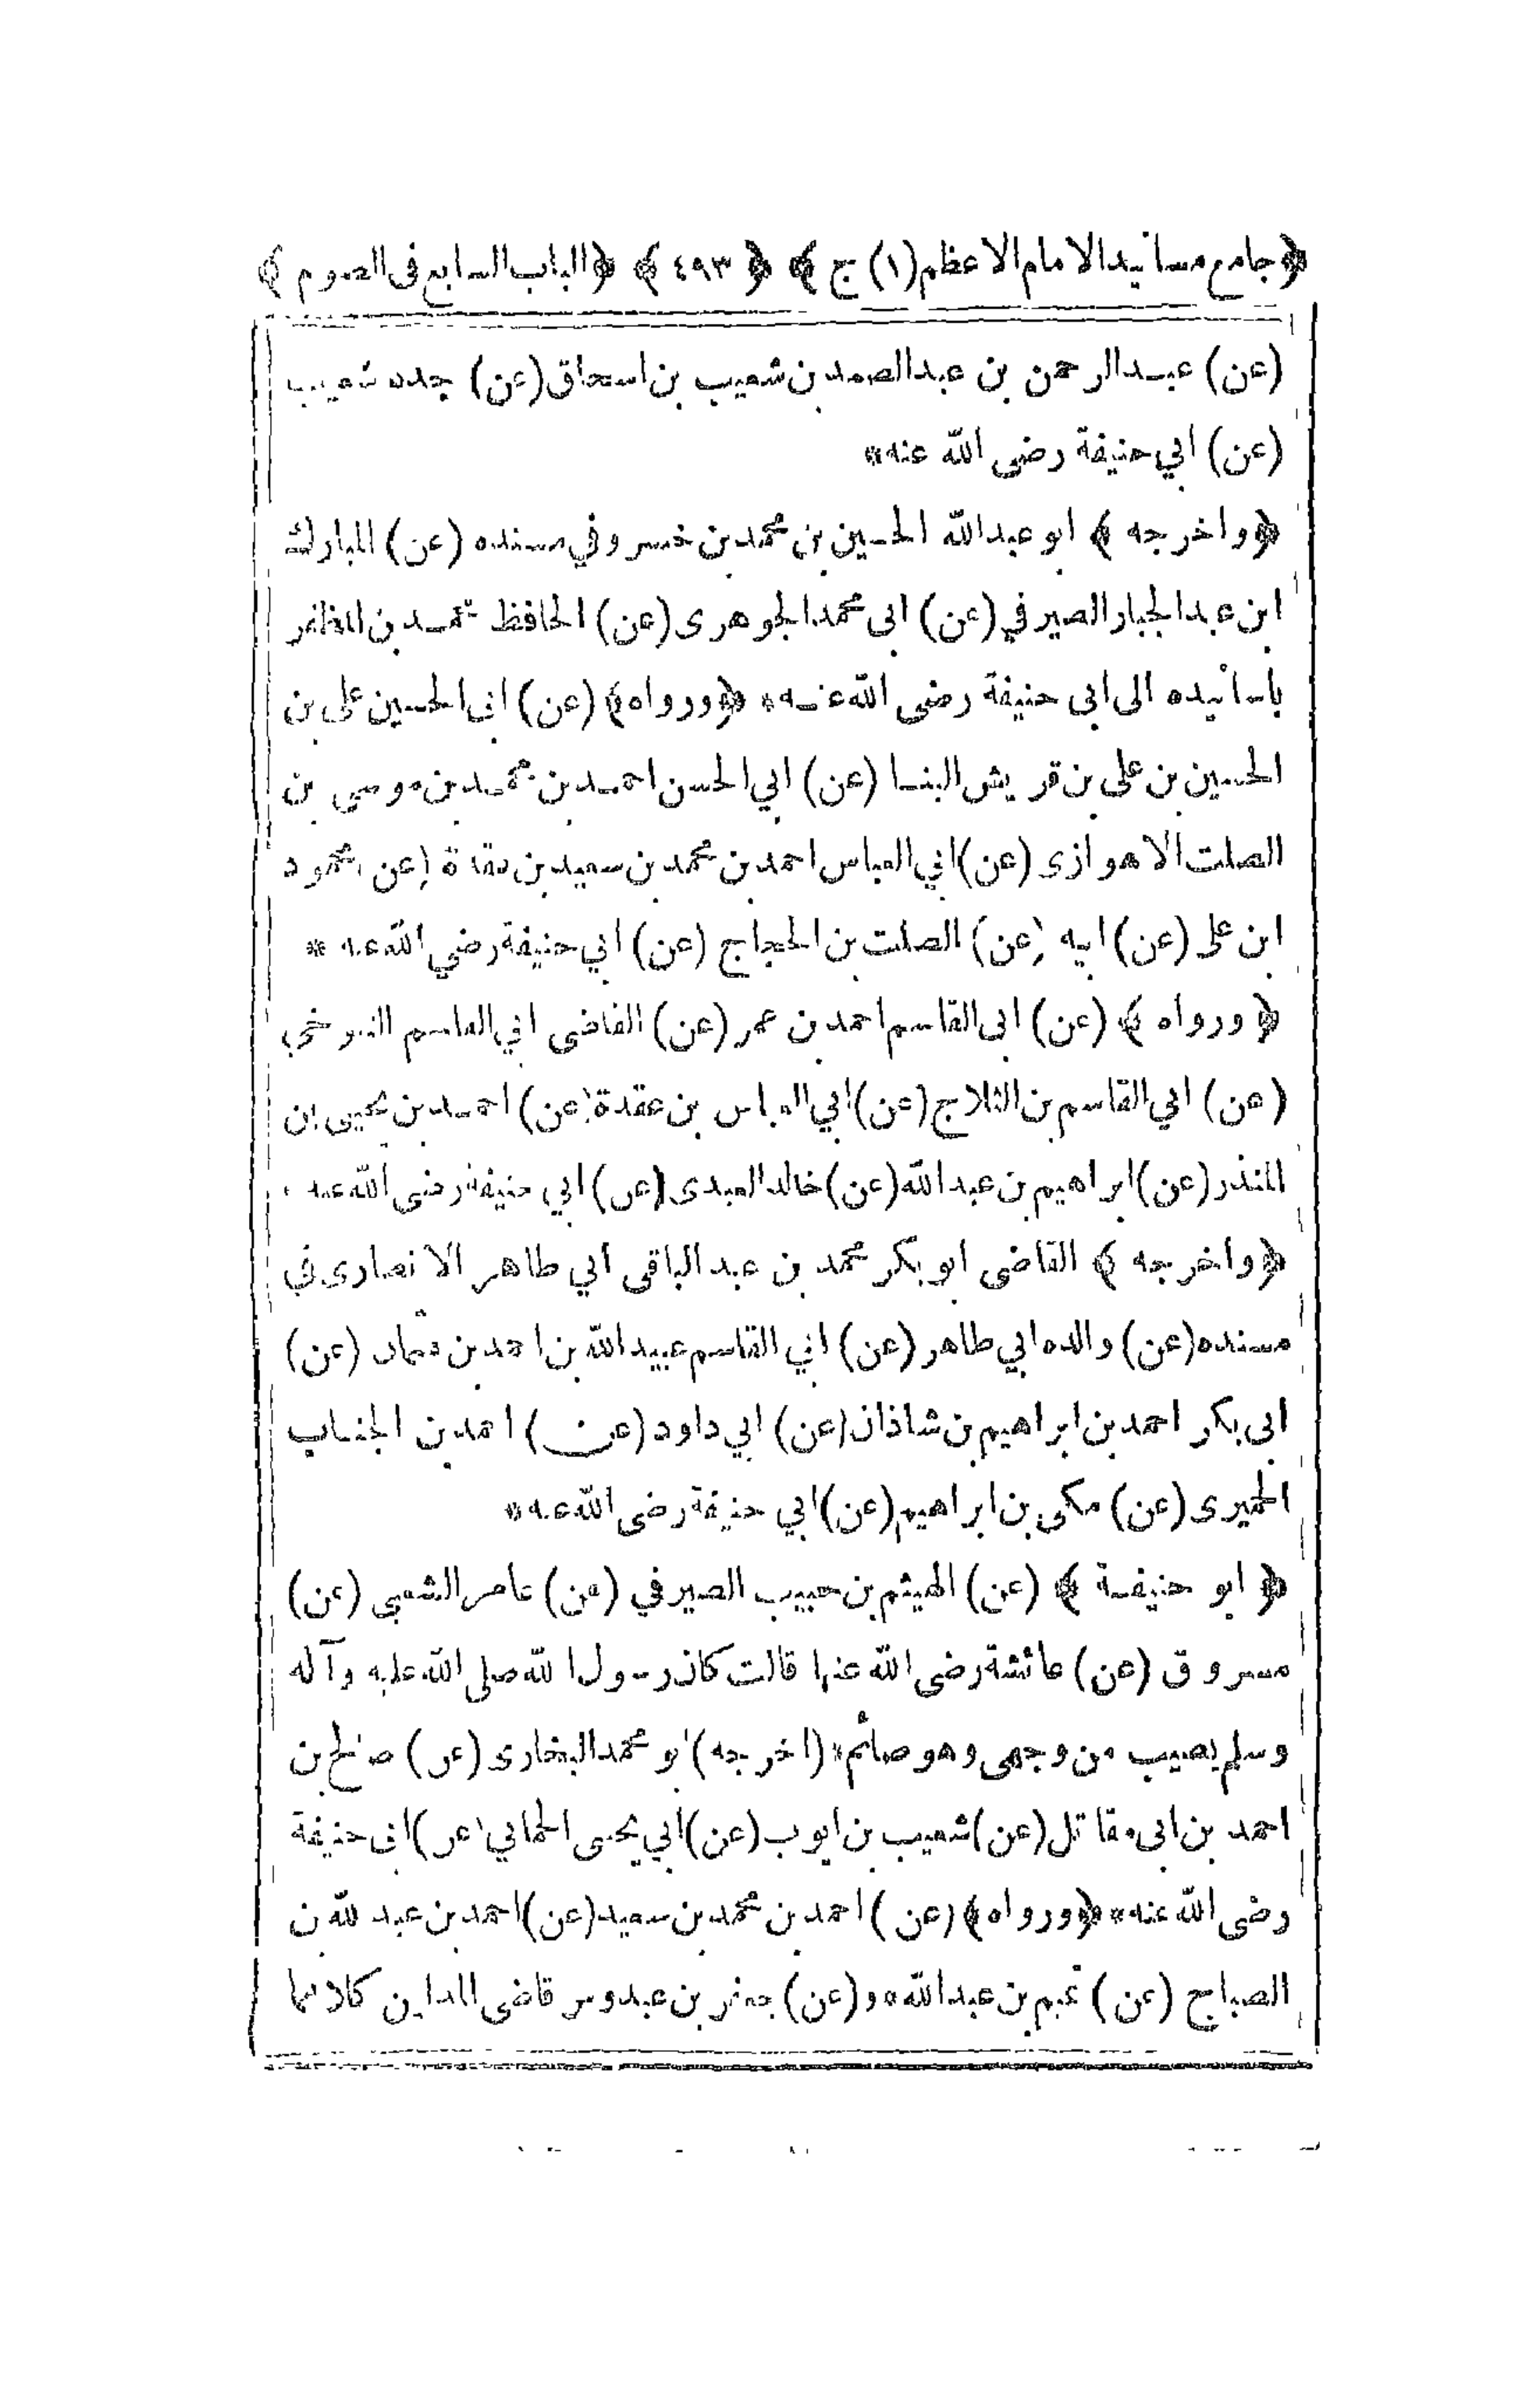 ﴿جامع مسانيد الامام الاعظم (١) ج﴾ ﴿٤٩٣﴾ ﴿الباب السابع فى الصوم﴾
(عن) عبد الرحمن بن عبد الصمد بن شعيب بن اسحاق (عن) جده شعيب
(عن) ابي حنيفة رضى الله عنه*
﴿واخرجه﴾ ابو عبد الله الحسين بن محمد بن خسرو في مسنده (عن) المبارك
ابن عبد الجبار الصير في (عن) ابى محمد الجوهرى (عن) الحافظ محمد بن المظفر
باسانيده الى ابى حنيفة رضى الله عنه* ﴿ورواه﴾ (عن) ابى الحسين على بن
الحسين بن على بن قريش البنا (عن) ابي الحسن احمد بن محمد بن موسى بن
الصلت الاهوازى (عن) ابي العباس احمد بن محمد بن سعيد بن عقدة (عن) محمود
ابن على (عن) ابيه (عن) الصلت بن الحجاج (عن) ابي حنيفة رضي الله عنه *
﴿ورواه﴾ (عن) ابى القاسم احمد بن عمر (عن) القاضى ابي القاسم التنوخي
(عن) ابي القاسم بن الثلاج (عن) ابي العباس بن عقدة (عن) احمد بن يحيى بن
المنذر (عن) ابراهيم بن عبد الله (عن) خالد العبدى (عن) ابي حنيفة رضى الله عنه *
﴿واخرجه﴾ القاضى ابو بكر محمد بن عبد الباقى ابي طاهر الانصارى في
مسنده (عن) والده ابي طاهر (عن) ابي القاسم عبيد الله بن احمد بن عثمان (عن)
ابى بكر احمد بن ابراهيم بن شاذان (عن) ابي داود (عن) احمد بن الجناب
الحميرى (عن) مكى بن ابراهيم (عن) ابي حنيفة رضى الله عنه*
﴿ابو حنيفة﴾ (عن) الهيثم بن حبيب الصير في (عن) عامر الشعبى (عن)
مسروق (عن) عائشة رضى الله عنها قالت كان رسول الله صلى الله عليه وآله
وسلم يصيب من وجهى وهو صائم* (اخرجه) ابو محمد البخارى (عن) صالح بن
احمد بن ابى مقاتل (عن) شعيب بن ايوب (عن) ابي يحيى الحماني (عن) ابى حنيفة
رضى الله عنه* ﴿ورواه﴾ (عن) احمد بن محمد بن سعيد (عن) احمد بن عبد الله بن
الصباح (عن) بن عبد الله* و(عن) جعفر بن عبدوس قاضى المداين كلاهما